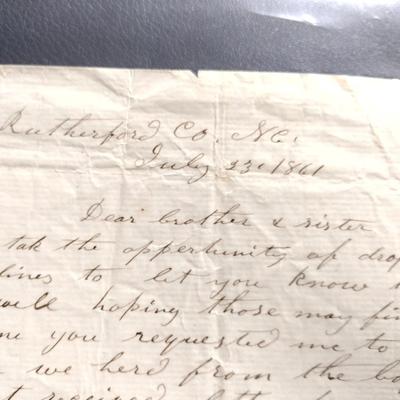 Rutherford Co. NC.
July 23. 1861
Dear brother & sister
tak the oppertunity of drop
lines to let you know
well hoping those may fin
me you requested me to
we herd from the bo
received